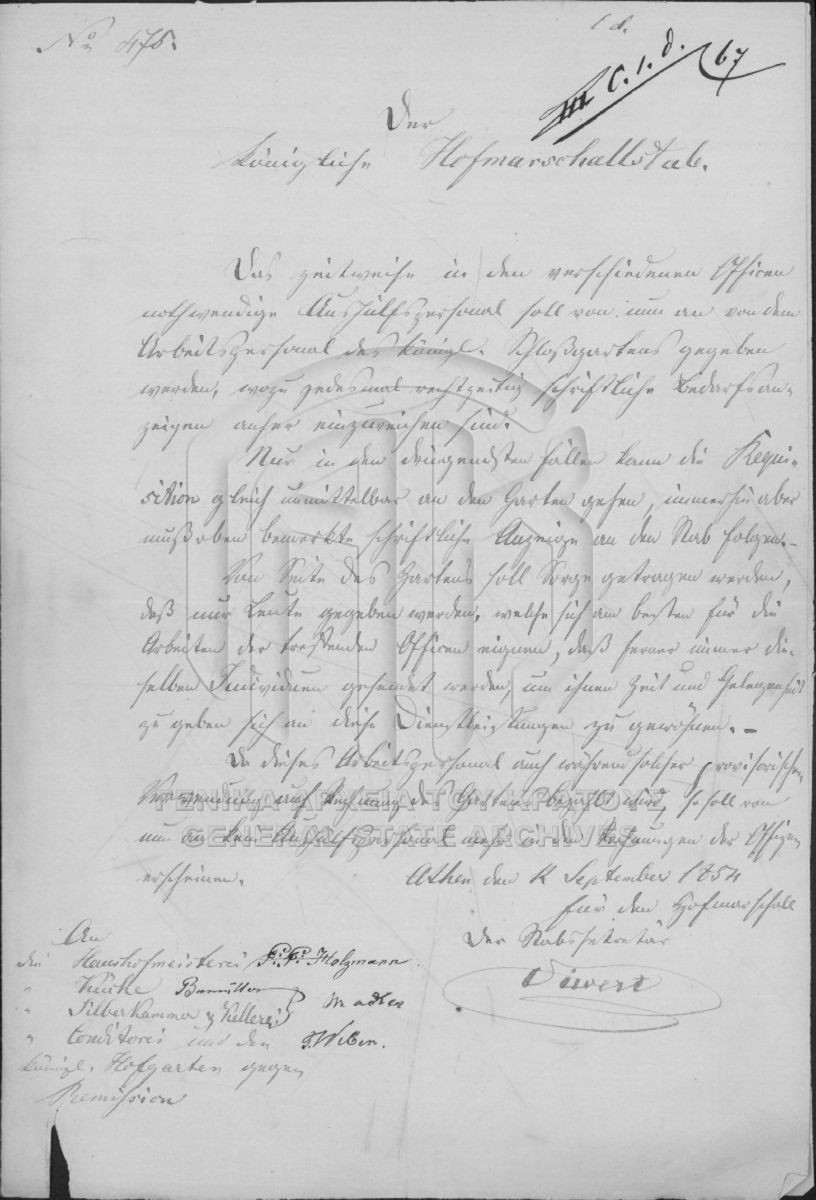 No 476.
1 d.
III C. 1. d. 67
Der
Königliche Hofmarschallstab.
Das zeitweise in den verschiedenen Officen
nothwendige Aushülfspersonal soll von nun an von dem
Arbeitspersonal des königl. Schloßgartens gegeben
werden, wozu jedesmal rechtzeitig schriftliche Bedarfsan-
zeigen anher einzureichen sind.
Nur in den dringendsten Fällen kann die Requi-
sition gleich unmittelbar an den Garten gehen, immerhin aber
muß oben bemerkte schriftliche Anzeige an den Stab folgen.
Von Seite des Gartens soll Sorge getragen werden,
daß nur Leute gegeben werden, welche sich am besten für die
Arbeiten der treffenden Officen eignen, daß ferner immer die-
selben Individuen gesendet werden, um ihnen Zeit und Gelegenheit
zu geben sich an diese Dienstleistungen zu gewöhnen.
Da dieses Arbeitspersonal auch während solcher provisorischen
Verwendung auf Rechnung des Gartens bezahlt wird, so soll von
nun an kein Aushülfspersonal mehr in den Rechnungen der Officen
erscheinen.
Athen den September 1854
Für den Hofmarschall
Der Stabssekretär
An
die Haushofmeisterei Holzmann.
" Küche
" Silberkammer & Kellerei
" Conditorei und den
königl. Hofgarten gegen
Remission
ΓΕΝΙΚΑ ΑΡΧΕΙΑ ΤΟΥ ΚΡΑΤΟΥΣ
GENERAL STATE ARCHIVES